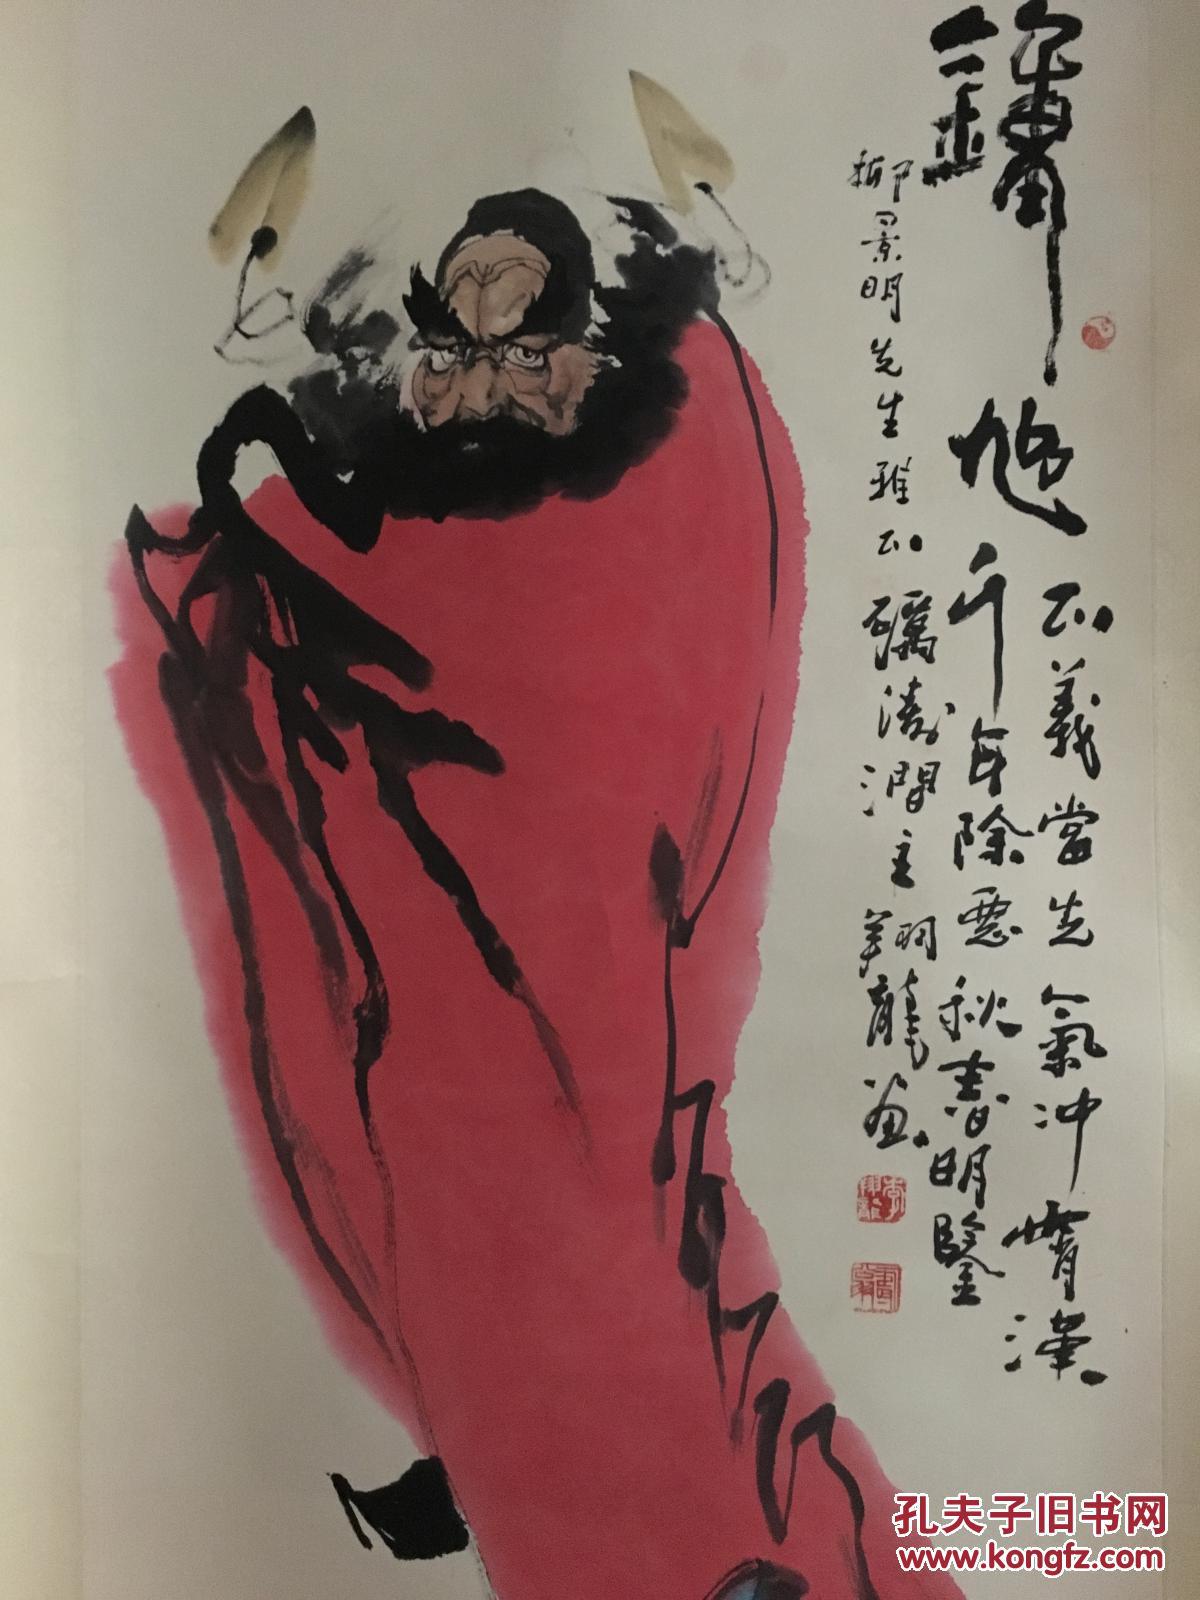 鍾馗
正義當先氣沖霄漢
千年除惡秋毫明鑒
柳景明先生雅正
礪濤澗主翔龍画
孔夫子旧书网
www.kongfz.com